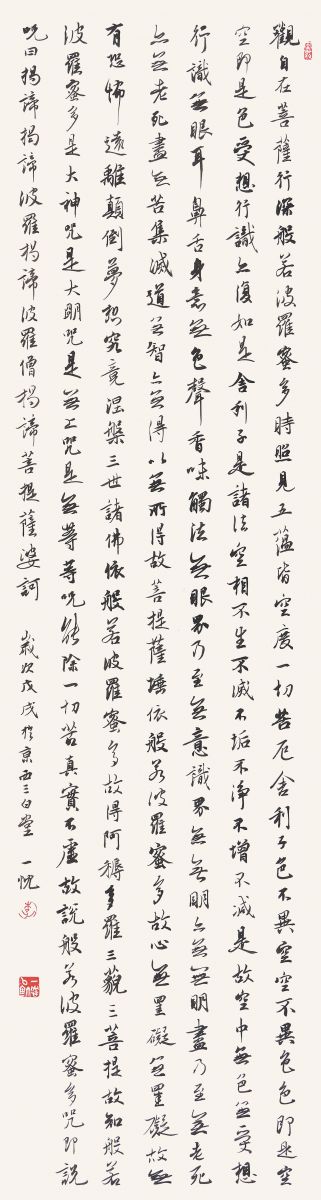 觀自在菩薩行深般若波羅蜜多時照見五蘊皆空度一切苦厄舍利子色不異空空不異色色即是空
空即是色受想行識亦復如是舍利子是諸法空相不生不滅不垢不淨不增不減是故空中無色無受想
行識無眼耳鼻舌身意無色聲香味觸法無眼界乃至無意識界無無明亦無無明盡乃至無老死
亦無老死盡無苦集滅道無智亦無得以無所得故菩提薩埵依般若波羅蜜多故心無罣礙無罣礙故無
有恐怖遠離顛倒夢想究竟涅槃三世諸佛依般若波羅蜜多故得阿耨多羅三藐三菩提故知般若
波羅蜜多是大神咒是大明咒是無上咒是無等等咒能除一切苦真實不虛故說般若波羅蜜多咒即說
咒曰揭諦揭諦波羅揭諦波羅僧揭諦菩提薩婆訶
歲次戊戌於京西三白堂 一忱
李